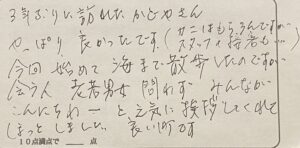 3年ぶりに訪れた かどやさん
やっぱり 良かったです。(カニはもちろんですが
スタッフ 接客も…)
今回 始めて 海まで散歩したのですが
会う人 老若男女 問わず みんなが
こんにちわー と、元気に 挨拶してくれて
ほっと しました。 良い町です
10点満点で ____ 点